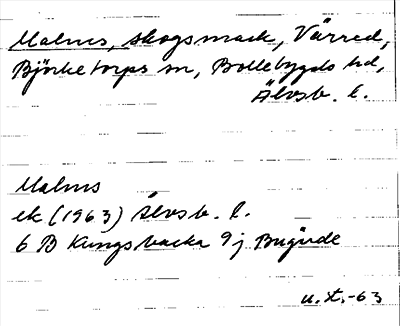 Malmås, skogsmark, Värred,
Björketorps sn, Bollebygds hd,
Älvsb. l.
Malmås
ek (1963) Älvsb. l.
6 B Kungsbacka 9j Bugärde
u.t.-63